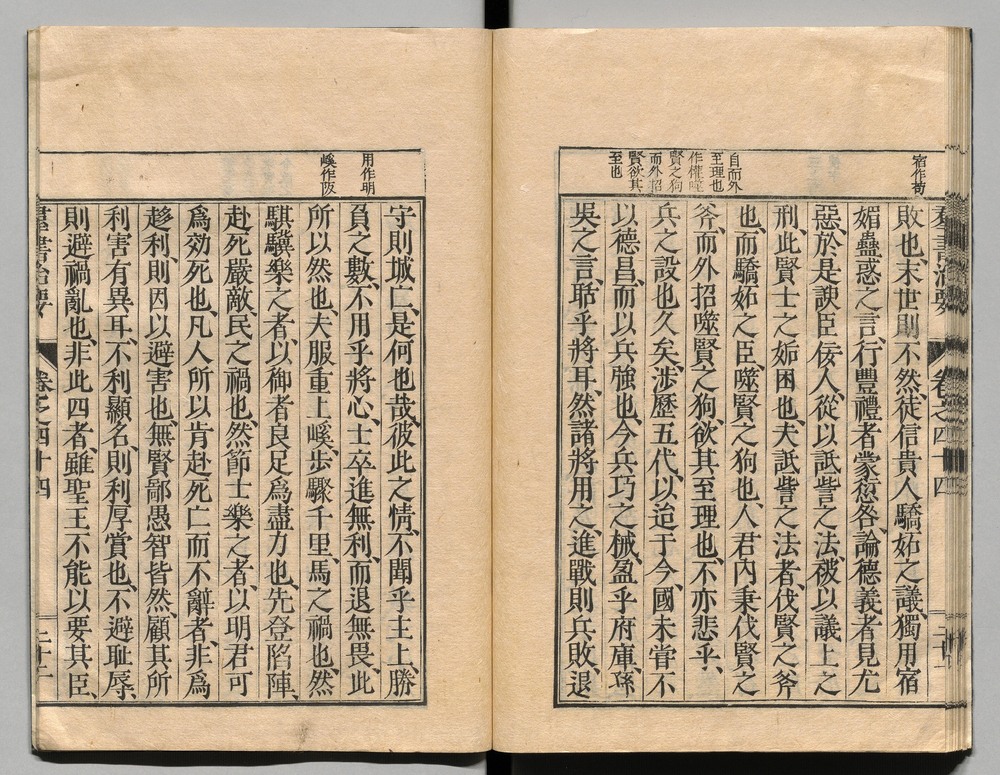 宿作苟
自而外
至理也
作権噬
賢之狗
而外招
賢欲其
至也
群書治要 卷之四十四 二十一
敗也、末世則不然、徒信貴人驕妬之議、獨用宿
媚蠱惑之言、行豐禮者蒙愆咎、論德義者見尤
惡、於是諛臣佞人、從以詆訾之法、被以議上之
刑、此賢士之姤困也、夫詆訾之法者、伐賢之斧
也、而驕妬之臣、噬賢之狗也、人君內秉伐賢之
斧、而外招噬賢之狗、欲其至理也、不亦悲乎、
兵之設也久矣、涉歷五代、以迨于今、國未嘗不
以德昌、而以兵強也、今兵巧之械、盈乎府庫、孫
吳之言、聒乎將耳、然諸將用之、進戰則兵敗、退
用作明
嶮作阪
守則城亡、是何也哉、彼此之情、不聞乎主上、勝
負之數、不用乎將心、士卒進無利、而退無畏、此
所以然也、夫服重上嶮、步驟千里、馬之禍也、然
騏驥樂之者、以御者良、足爲盡力也、先登陷陣、
赴死嚴敵、民之禍也、然節士樂之者、以明君可
爲効死也、凡人所以肯赴死亡而不辭者、非爲
趍利、則因以避害也、無賢鄙愚智皆然、顧其所
利害有異耳、不利顯名、則利厚賞也、不避耻辱、
則避禍亂也、非此四者、雖聖王不能以要其臣、
群書治要 卷之四十四